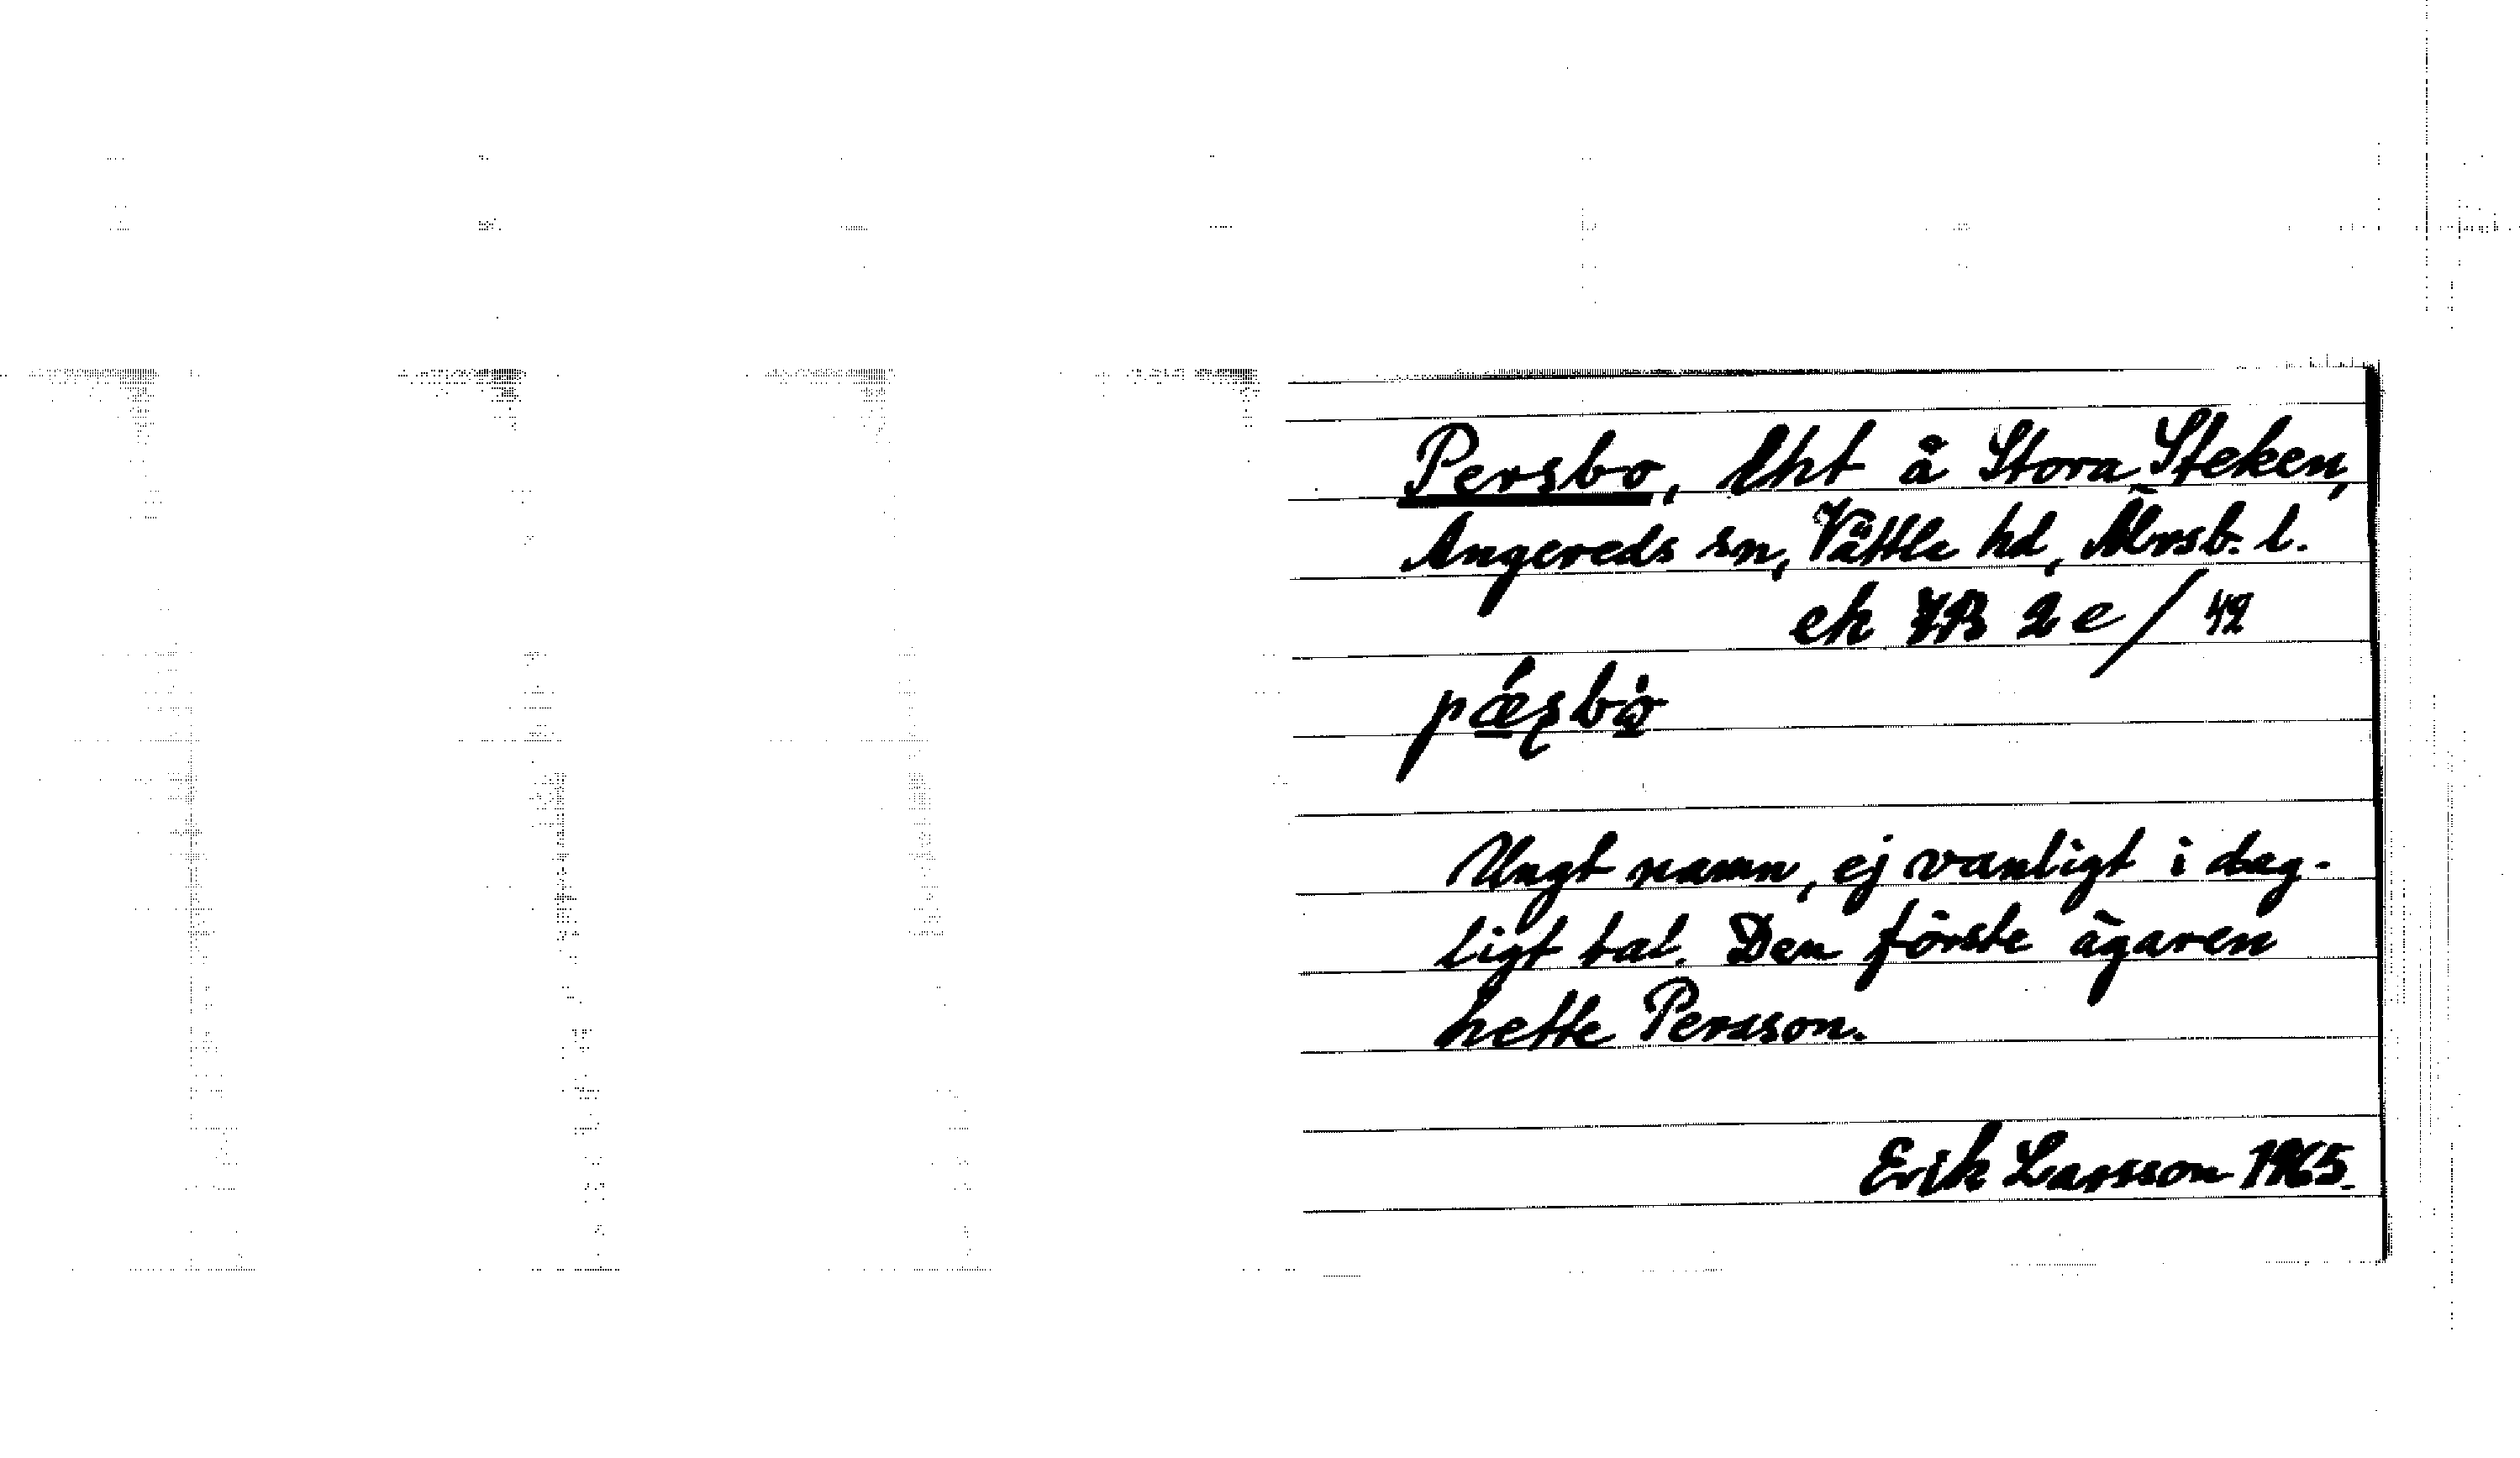 Persbo, lht å Stora Steken,
Angereds sn, Vättle hd, Älvsb. l.
ek 7B 2 e / 42
pǽʂbò
Ungt namn, ej vanligt i dag-
ligt tal. Den förste ägaren
hette Persson.
Erik Larsson 1965.